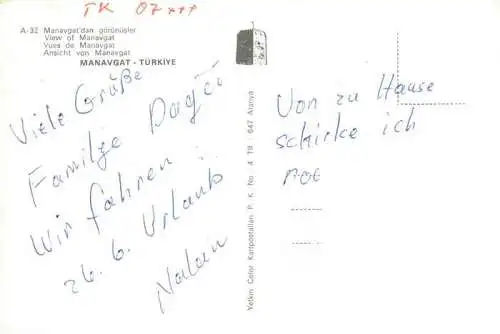 TK 07+++
A-32 Manavgat'dan görünüşler
View of Manavgat
Vues de Manavgat
Ansicht von Manavgat
MANAVGAT - TÜRKİYE
Viele Grüße
Familie Dağci
Wir fahren
26.6. Urlaub
Nalan
Yetkin Color Kartpostalları P. K. No 4 Tlf 647 Alanya
Von zu Hause
schicke ich